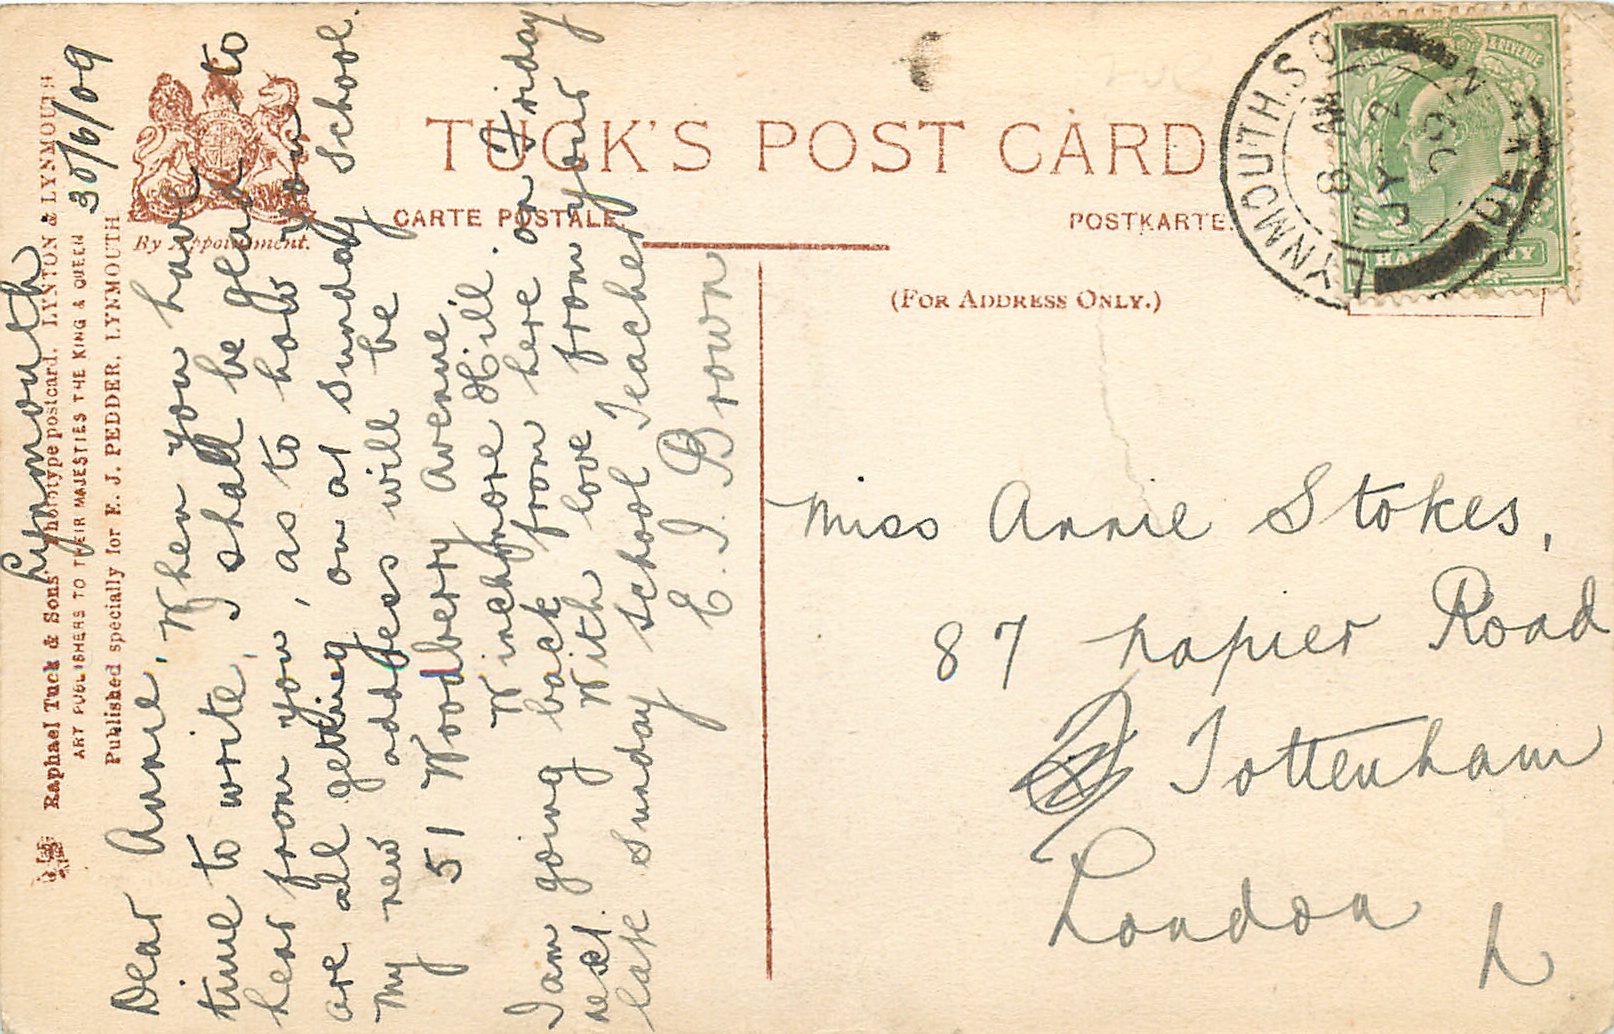 Lynmouth
30/6/09
Dear Annie, When you have
time to write, I shall be glad to
hear from you, as to how you
are all getting on at sunday school.
My new address will be
51 Woodberry Avenue
Winchmore Hill.
I am going back from here on Friday
next. With love from your
late Sunday school Teacher
E. J. Brown
Raphael Tuck & Sons' Photoype postcard. LYNTON & LYNMOUTH
ART PUBLISHERS TO THEIR MAJESTIES THE KING & QUEEN
Published specially for E. J. PEDDER, LYNMOUTH
By Appointment.
TUCK'S POST CARD
CARTE POSTALE
POSTKARTE.
(FOR ADDRESS ONLY.)
LYNMOUTH. S.O.
8 AM
JY 2
09
DEVON
& REVENUE
HALFPENNY
Miss Annie Stokes,
87 Napier Road
Tottenham
London
N